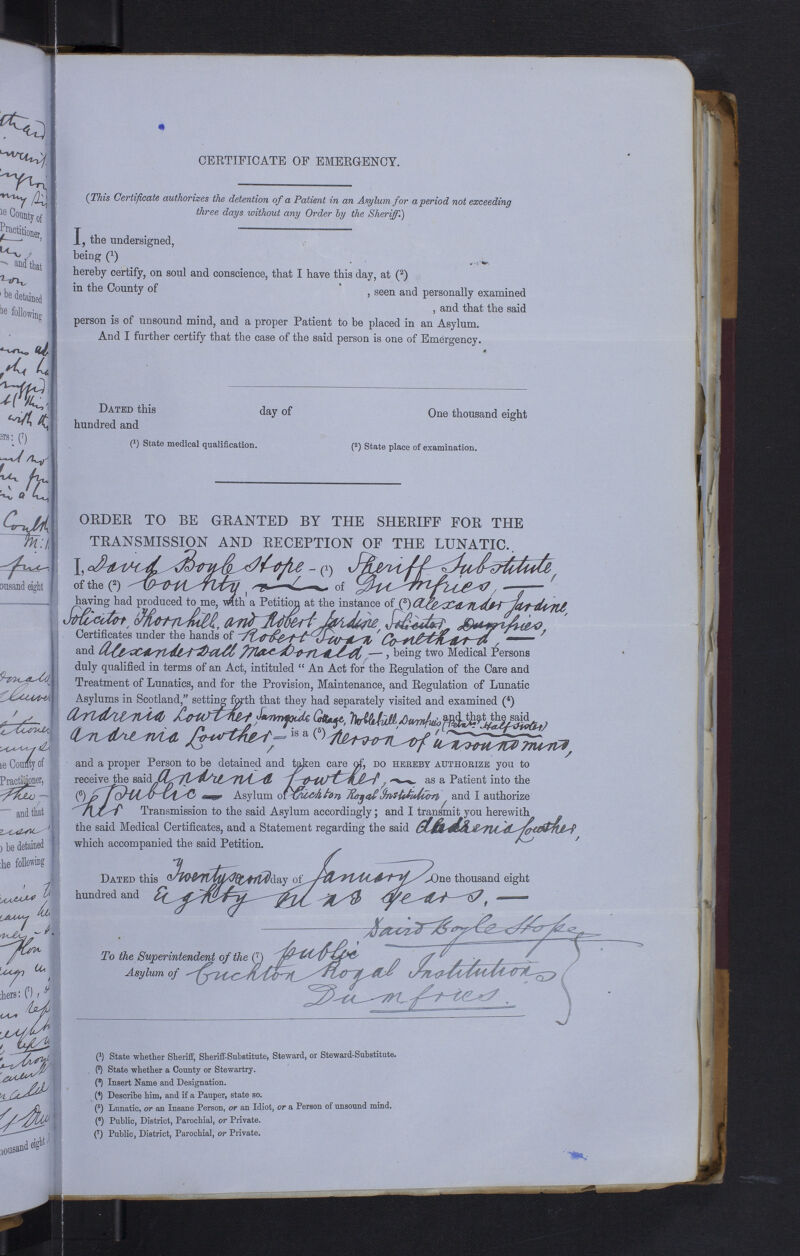 CERTIFICATE OF EMERGENCY.
(This Certificate authorizes the detention of a Patient in an Asylum for a period not exceeding
three days without any Order by the Sheriff.)
I, the undersigned,
being (¹)
hereby certify, on soul and conscience, that I have this day, at (²)
in the County of , seen and personally examined
, and that the said
person is of unsound mind, and a proper Patient to be placed in an Asylum.
And I further certify that the case of the said person is one of Emergency.
DATED this day of One thousand eight
hundred and
(¹) State medical qualification. (²) State place of examination.
ORDER TO BE GRANTED BY THE SHERIFF FOR THE
TRANSMISSION AND RECEPTION OF THE LUNATIC.
I, David Boyle Hope - (¹) Sheriff Substitute,
of the (²) County, of Dumfries,
having had produced to me, with a Petition at the instance of (³) Alexander Jardine,
Solicitor, Thornhill, and Robert Jardine, Solicitor, Dumfries,
Certificates under the hands of Robert Swan Coulthard, —
and Alexander Dall MacDonald, —, being two Medical Persons
duly qualified in terms of an Act, intituled “An Act for the Regulation of the Care and
Treatment of Lunatics, and for the Provision, Maintenance, and Regulation of Lunatic
Asylums in Scotland,” setting forth that they had separately visited and examined (⁴)
Andrenia Lowther, Cottage, Noblehill, Dumfries, and that the said
Half Sister)
Andrenia Lowther, — is a (⁵) Person of unsound mind,
and a proper Person to be detained and taken care of, DO HEREBY AUTHORIZE you to
receive the said Andrenia Lowther, as a Patient into the
(⁶) Public — Asylum of Crichton Royal Institution, and I authorize
her Transmission to the said Asylum accordingly; and I transmit you herewith
the said Medical Certificates, and a Statement regarding the said Andrenia Lowther,
which accompanied the said Petition.
DATED this Twenty second day of January One thousand eight
hundred and Eighty years. —
David Boyle Hope
To the Superintendent of the (⁷) public
Asylum of Crichton Royal Institution
Dumfries.
(¹) State whether Sheriff, Sheriff-Substitute, Steward, or Steward-Substitute.
(²) State whether a County or Stewartry.
(³) Insert Name and Designation.
(⁴) Describe him, and if a Pauper, state so.
(⁵) Lunatic, or an Insane Person, or an Idiot, or a Person of unsound mind.
(⁶) Public, District, Parochial, or Private.
(⁷) Public, District, Parochial, or Private.